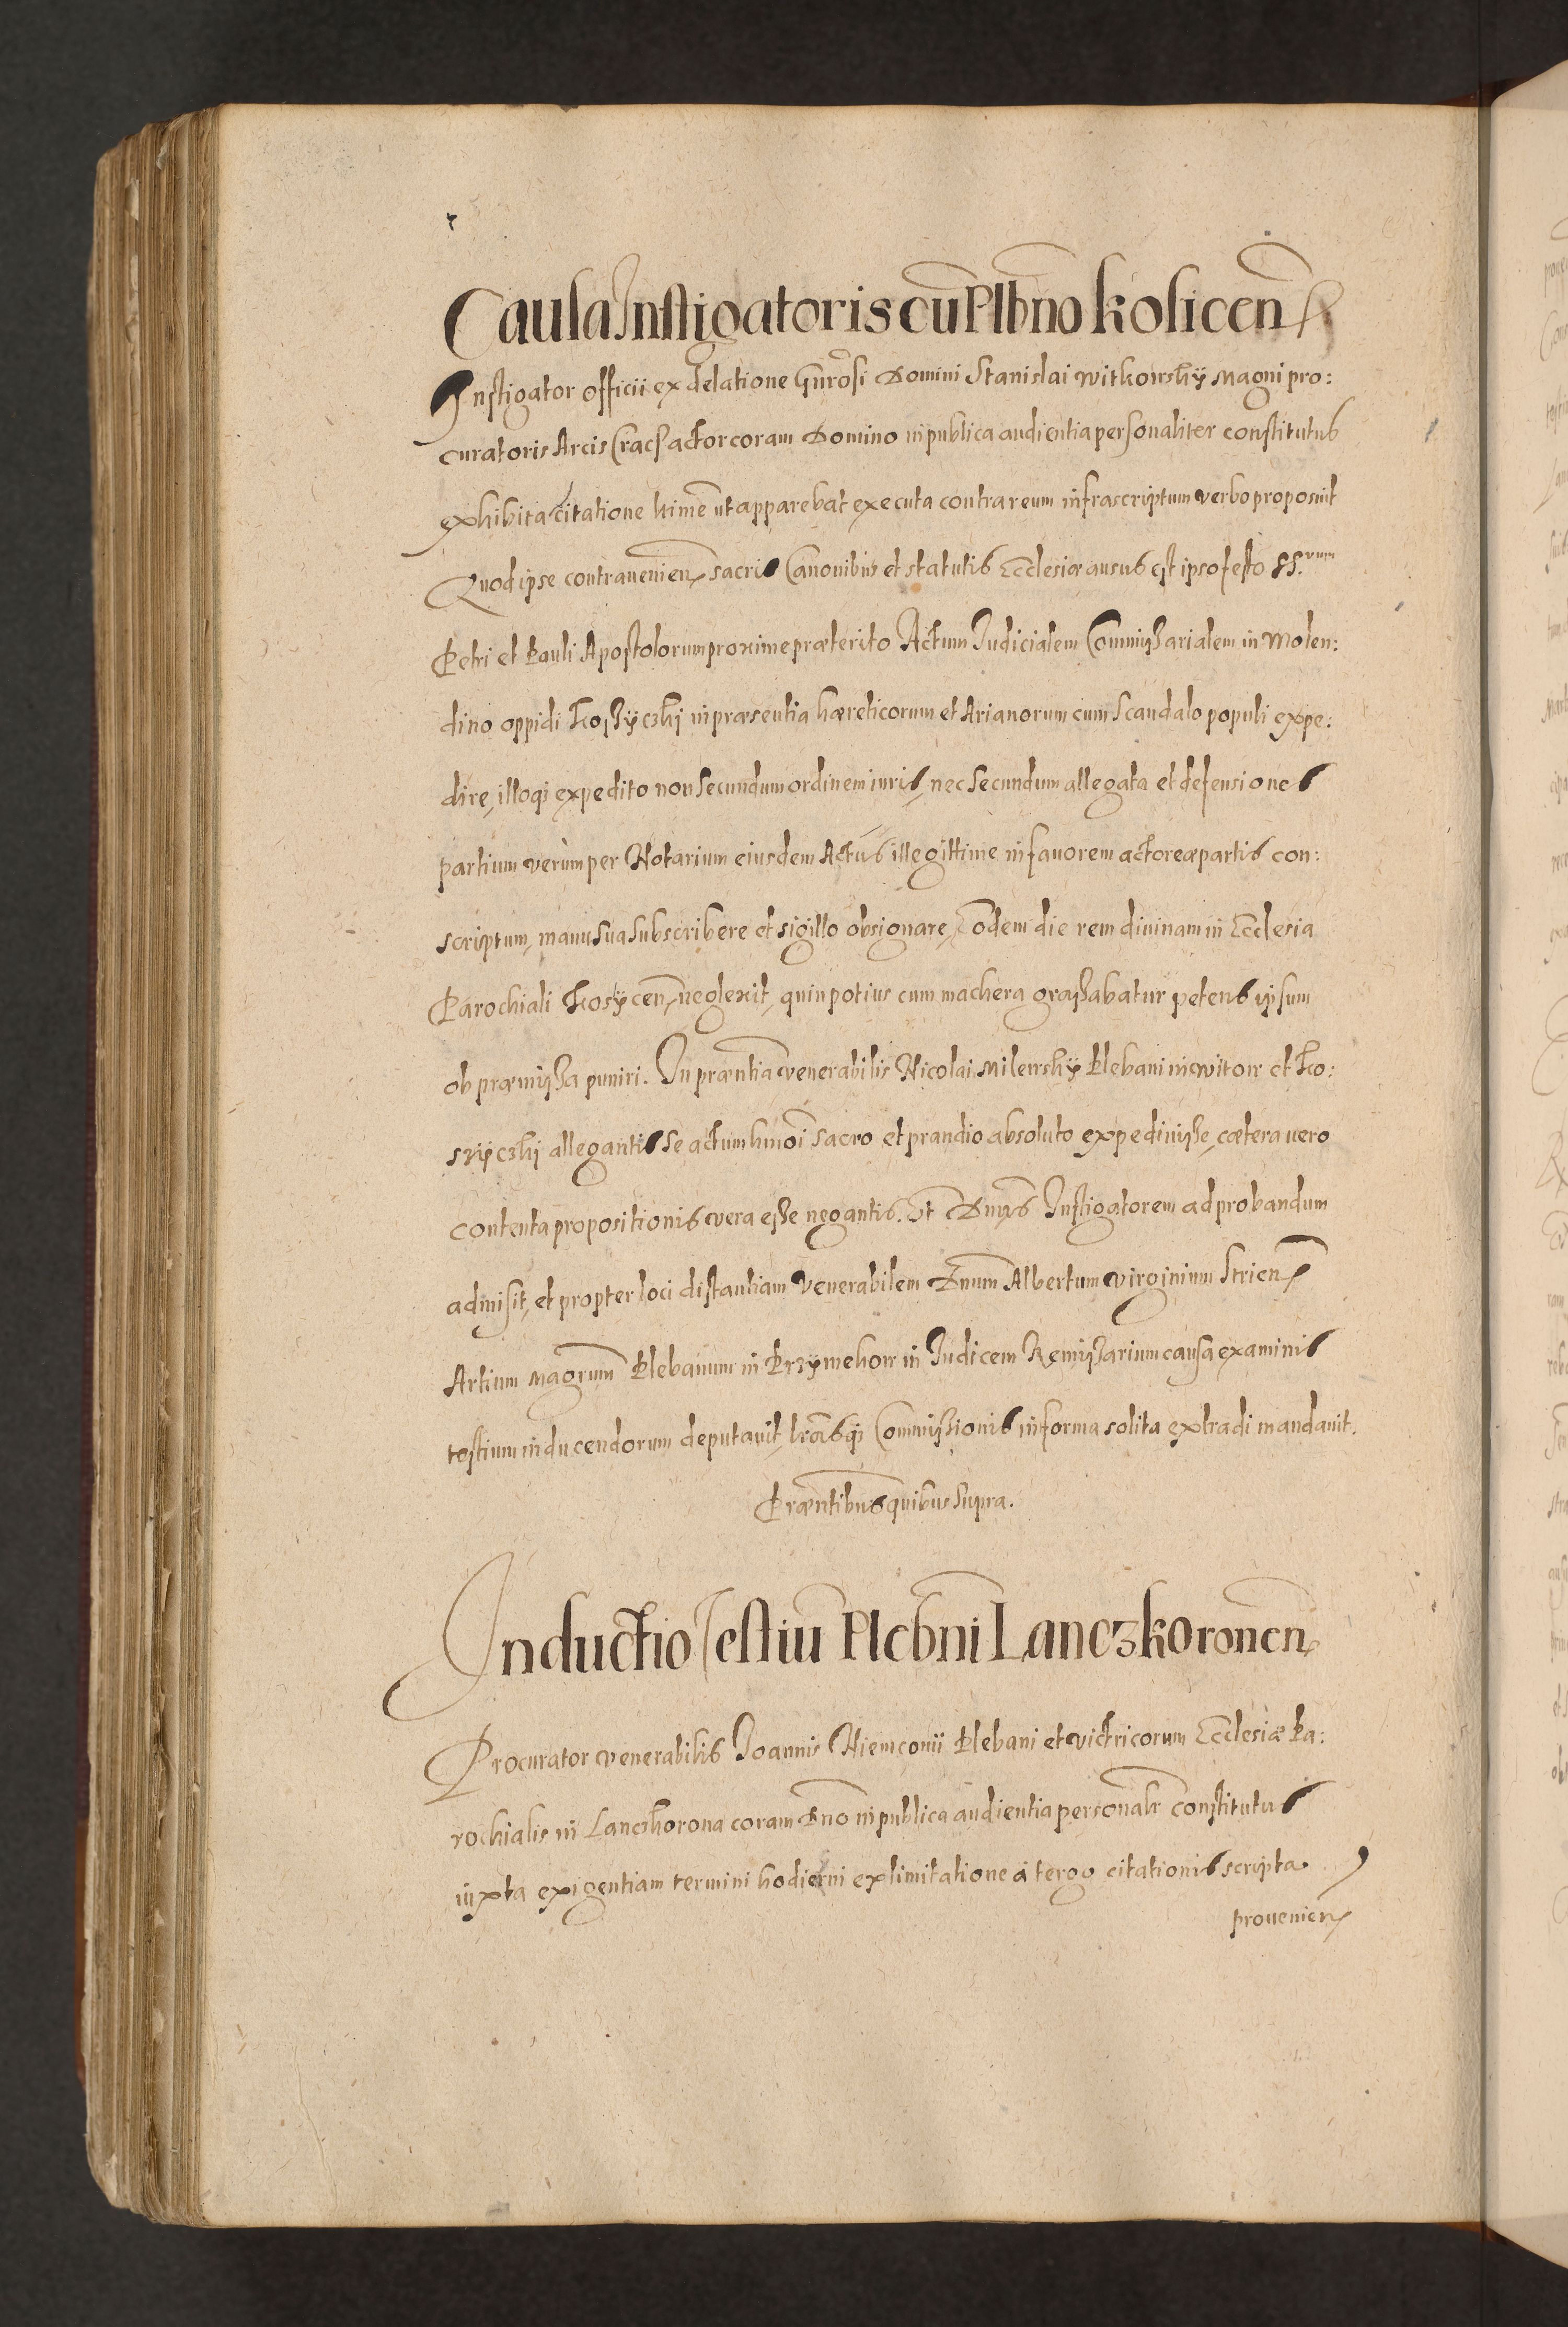 Causa Instigatoris cū Plbno Kosicen
Instigator officii ex delatione Gnrosi Domini Stanislai Witkowsky Magni pro:
curatoris Arcis Crac actor coram Domino in publica audientia personaliter constitutus
exhibita citatione ltime ut apparebat executa contra reum infrascriptum verbo proposuit
Quod ipse contravenien sacris Canonibus et statutis Ecclesiæ ausus est ipso festo SS.rum
Petri et Pauli Apostolorum proxime præterito Actum Iudicialem Commissarialem in Molen:
dino oppidi Koszyczkj in præsentia hæreticorum et Arianorum cum scandalo populi expe:
dire, illoq; expedito non secundum ordinem iuris, nec secundum allegata et defensiones
partium verum per Notarium eiusdem Actus illegittime in favorem actoreæ partis con:
scriptum, manu sua subscribere et sigillo obsignare, Eodem die rem divinam in Ecclesia
Parochiali Kosycen neglexit, quin potius cum machera grassabatur petens ipsum
ob præmissa puniri. In præntia venerabilis Nicolai Milewsky Plebani in Witow et Ko:
szyczkj allegantis se actum hmoi sacro et prandio absoluto expedivisse, cætera vero
contenta propositionis vera esse negantis. Et Dnus Instigatorem ad probandum
admisit, et propter loci distantiam Venerabilem Dnum Albertum Virginium Strien
Artium Magrum Plebanum in Przymehow in Iudicem Remissarium causa examinis
testium inducendorum deputavit, lrasq; Commissionis in forma solita extradi mandavit.
Præntibus quibus supra.
Inductio Testiū Plebni Lanczkoronen
Procurator venerabilis Ioannis Niemconii Plebani et victricorum Ecclesiæ Pa:
rochialis in Lanczkorona coram Dno in publica audientia personalr constitutus
iuxta exigentiam termini hodierni ex limitatione à tergo citationis scripta
provenien